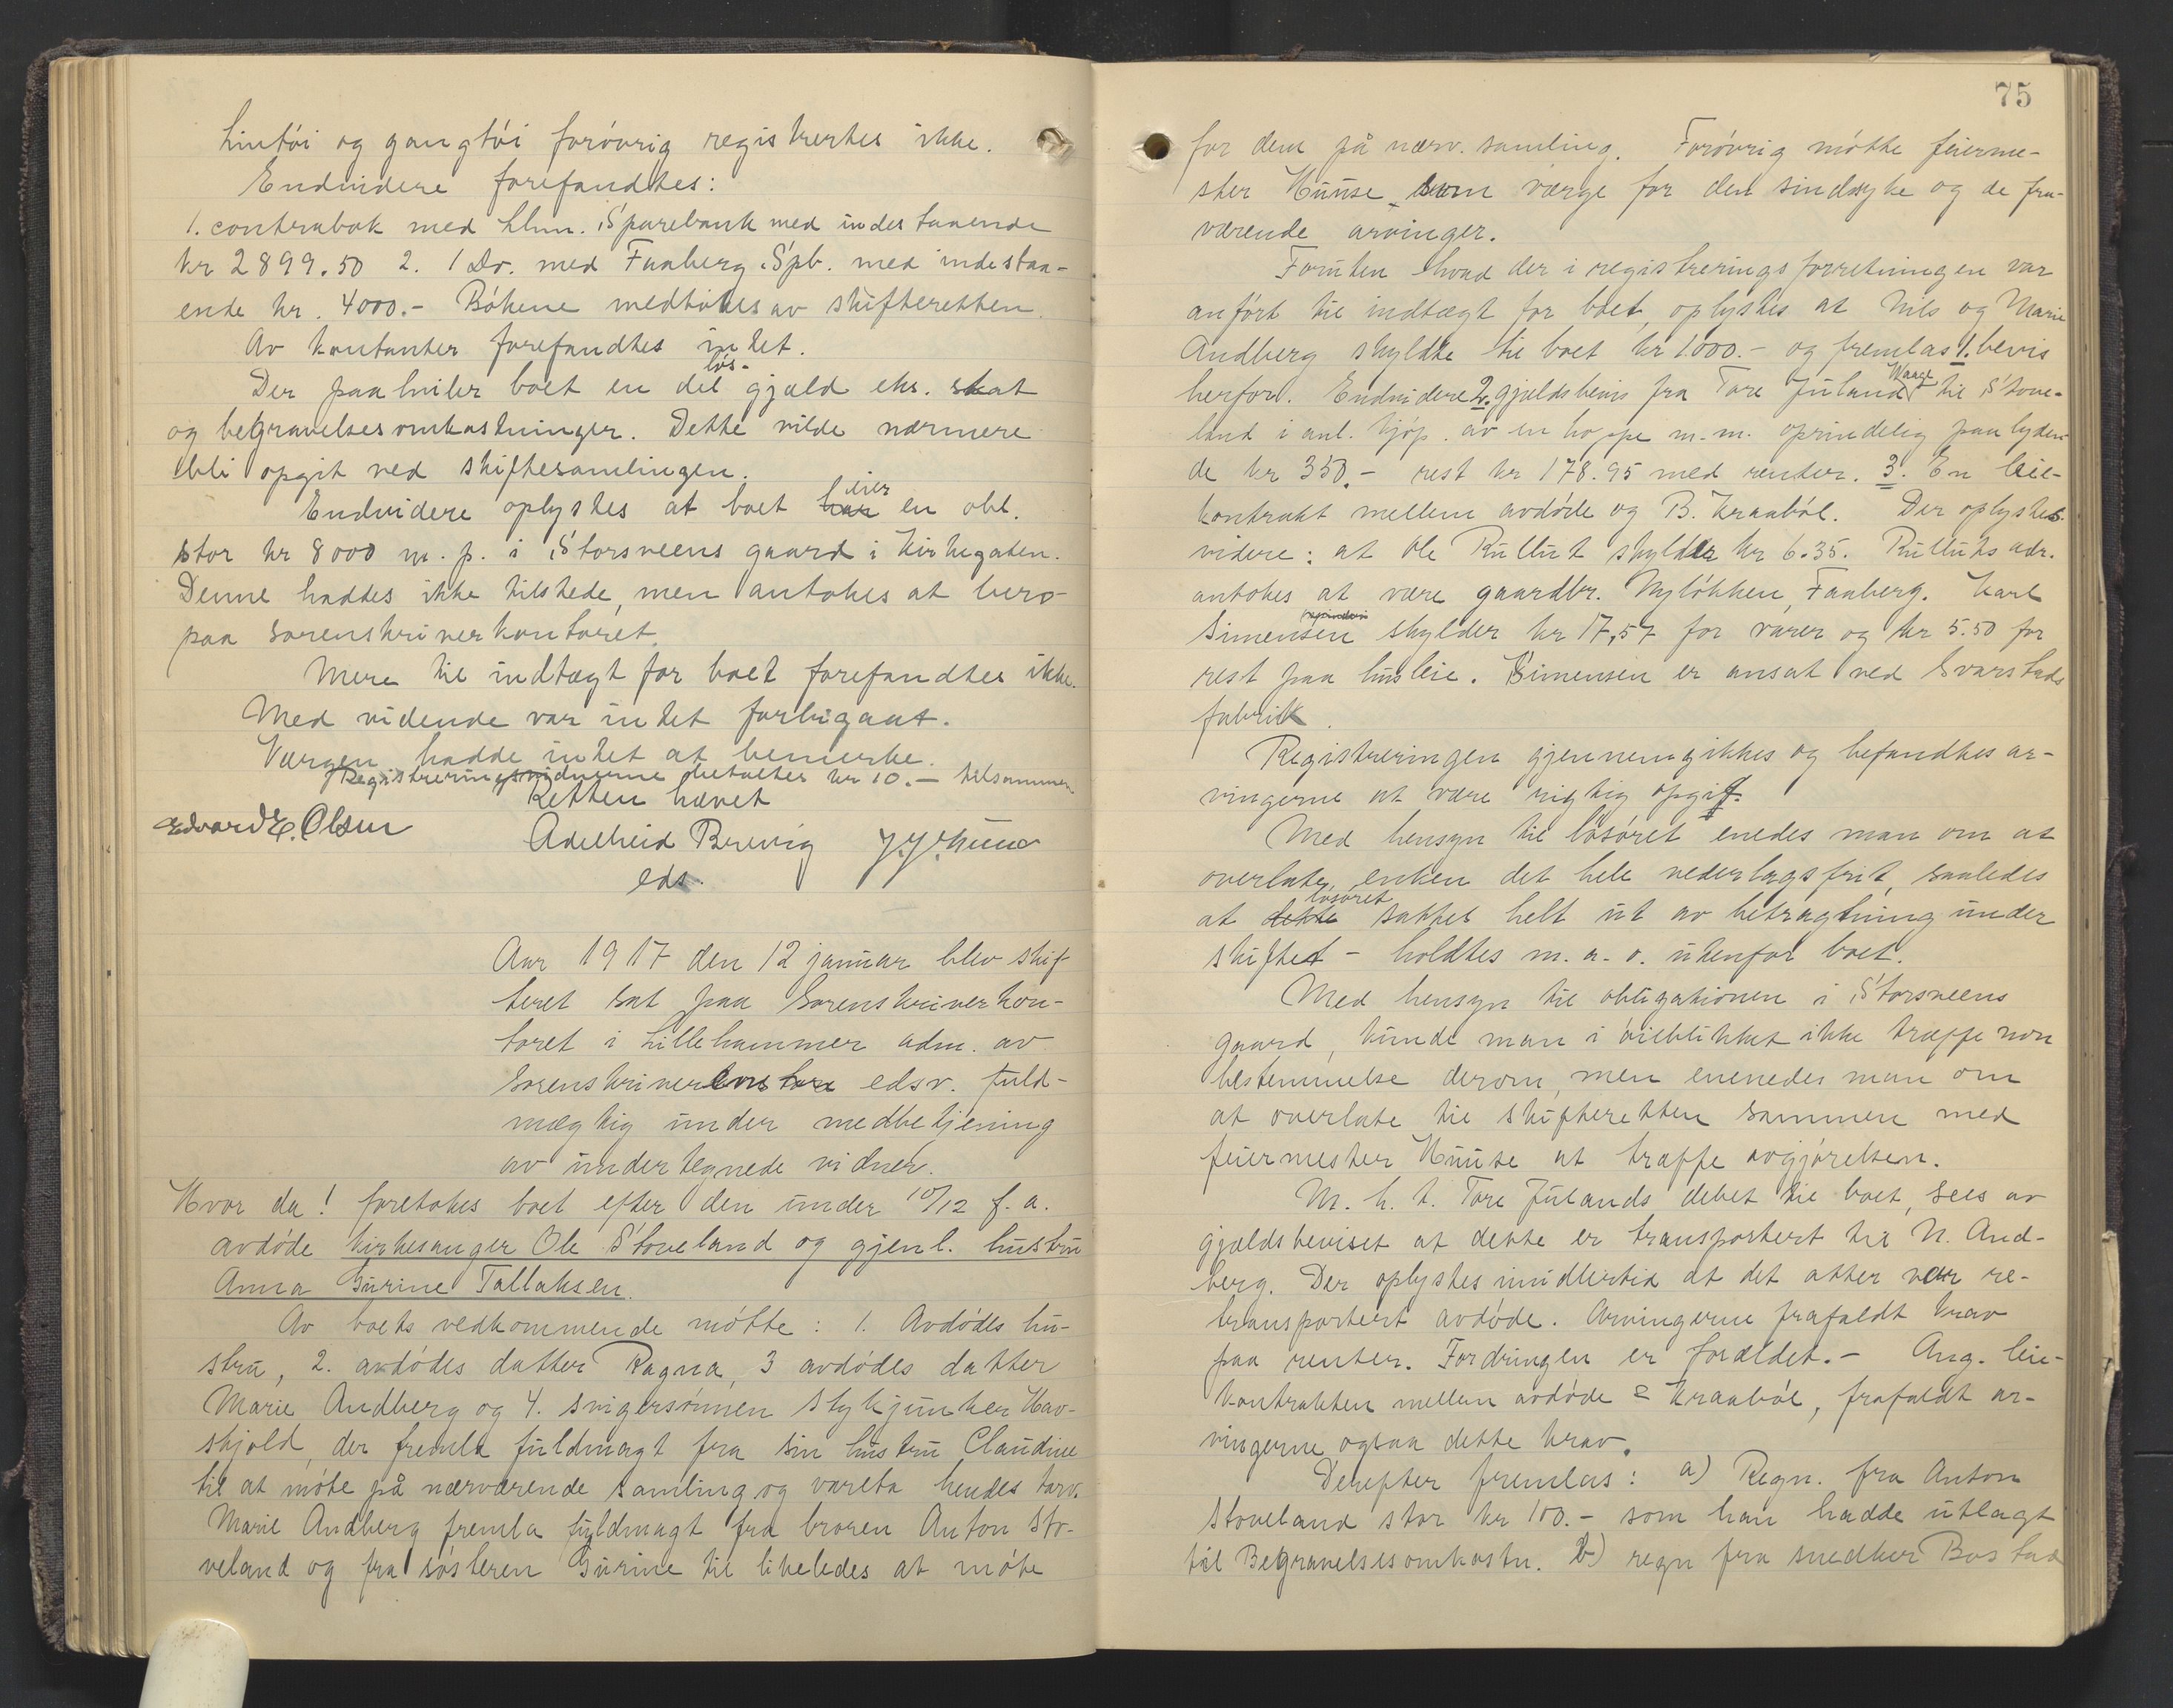 Lintöi og gangtöi forövrig registrertes ikke.
Endvidere forefandtes:
1. contrabok med Lhm. Sparebank med indestaaende
kr 2899.50 2. 1 Do. med Faaberg Spb. med indestaa-
ende kr. 4000.- Bökene medtokes av skifteretten.
Av kontanter forefandtes intet.
lös-
Der paahviler boet en del gjæld eks. skat
og begravelsesomkostninger. Dette vilde nærmere
bli opgit ved skiftesamlingen.
eier
Endvidere oplystes at boet har en obl.
stor kr 8000 m. p. i Storsveens gaard i Kirkegaten.
Denne haddes ikke tilstede, men antokes at bero
paa sorenskriverkontoret.
Mere til indtægt for boet forefandtes ikke.
Med vidende var intet forbigaat.
Værgen hadde intet at bemerke.
Registreringsvidnerne betaltes kr 10.- tilsammen
Retten hævet
Edvard E. Olsen Adelheid Brevig J. J. Huuse
eds.
Aar 1917 den 12 januar blev skif-
teret sat paa Sorenskriverkon-
toret i Lillehammer adm. av
Sorenskriverens edsv. fuld-
mægtig under medbetjening
av undertegnede vidner.
Hvor da! foretokes boet efter den under 10/12 f. a.
avdöde kirkesanger Ole Stoveland og gjenl. hustru
Anna Gurine Tallaksen.
Av boets vedkommende mötte: 1. Avdödes hu-
stru, 2. avdödes datter Ragna, 3 avdödes datter
Marie Andberg og 4. svigersönnen Stykjunker Hav-
skjold, der fremla fuldmagt fra sin hustru Claudine
til at möte på nærværende samling og vareta hendes tarv.
Marie Andberg fremla fuldmagt fra broren Anton Sto-
veland og fra sösteren Gurine til likeledes at möte
75
for dem på nærv. samling. Forövrig mötte feierme-
ster Huuse som værge for den sindsyke og de fra-
værende arvinger.
Foruten hvad der i registreringsforretningen var
anfört til indtægt for boet, oplystes at Nils og Marie
Andberg skyldte til boet kr 1000.- og fremlas 1. bevis
Waage
herfor. Endvidere 2. gjældsbevis fra Tore Juland til Stove-
land i anl. kjöp. av en hoppe m.m. oprindelig paalyden-
de kr 350.- rest kr 178.95 med renter. 3. En leie-
kontrakt mellem avdöde og B. Kraaböl. Der oplystes
videre: at Ole Rullut skylder kr 6.35. Rulluts adr.
antokes at være gaardbr. Nylökken, Faaberg. Karl
Simensen skylder kr 17,57 for varer og kr 5.50 for
rest paa husleie. Simensen er ansat ved Svarstads
fabrik.
Registreringen gjennemgikkes og befandtes ar-
vingerne at være rigtig opgit.
Med hensyn til lösöret enedes man om at
overlate enken det hele vederlagsfrit, saaledes
lösöret
at dette sattes helt ut av betragtning under
skiftet - holdtes m. a. o. utenfor boet.
Med hensyn til obligationen i Storsveens
gaard, kunde man i öieblikket ikke træffe non
bestemmelse derom, men enenedes man om
at overlate til skifteretten sammen med
feiermester Huuse at træffe avgjörelsen.
M. h. t. Tore Julands debet til boet, sees av
gjældsbeviset at dette er transportert til N. And-
berg. Der oplystes imidlertid at det atter var re-
transportert avdöde. Arvingerne frafaldt krav
paa renter. Fordringen er forældet.- Ang. leie-
kontrakten mellem avdöde & Kraaböl, frafaldt ar-
vingerne ogsaa dette krav.
Derefter fremlas: a) Regn. fra Anton
Stoveland stor kr 100.- som han hadde utlagt
til Begravelsesomkostn. b) regn fra snedker Bostad